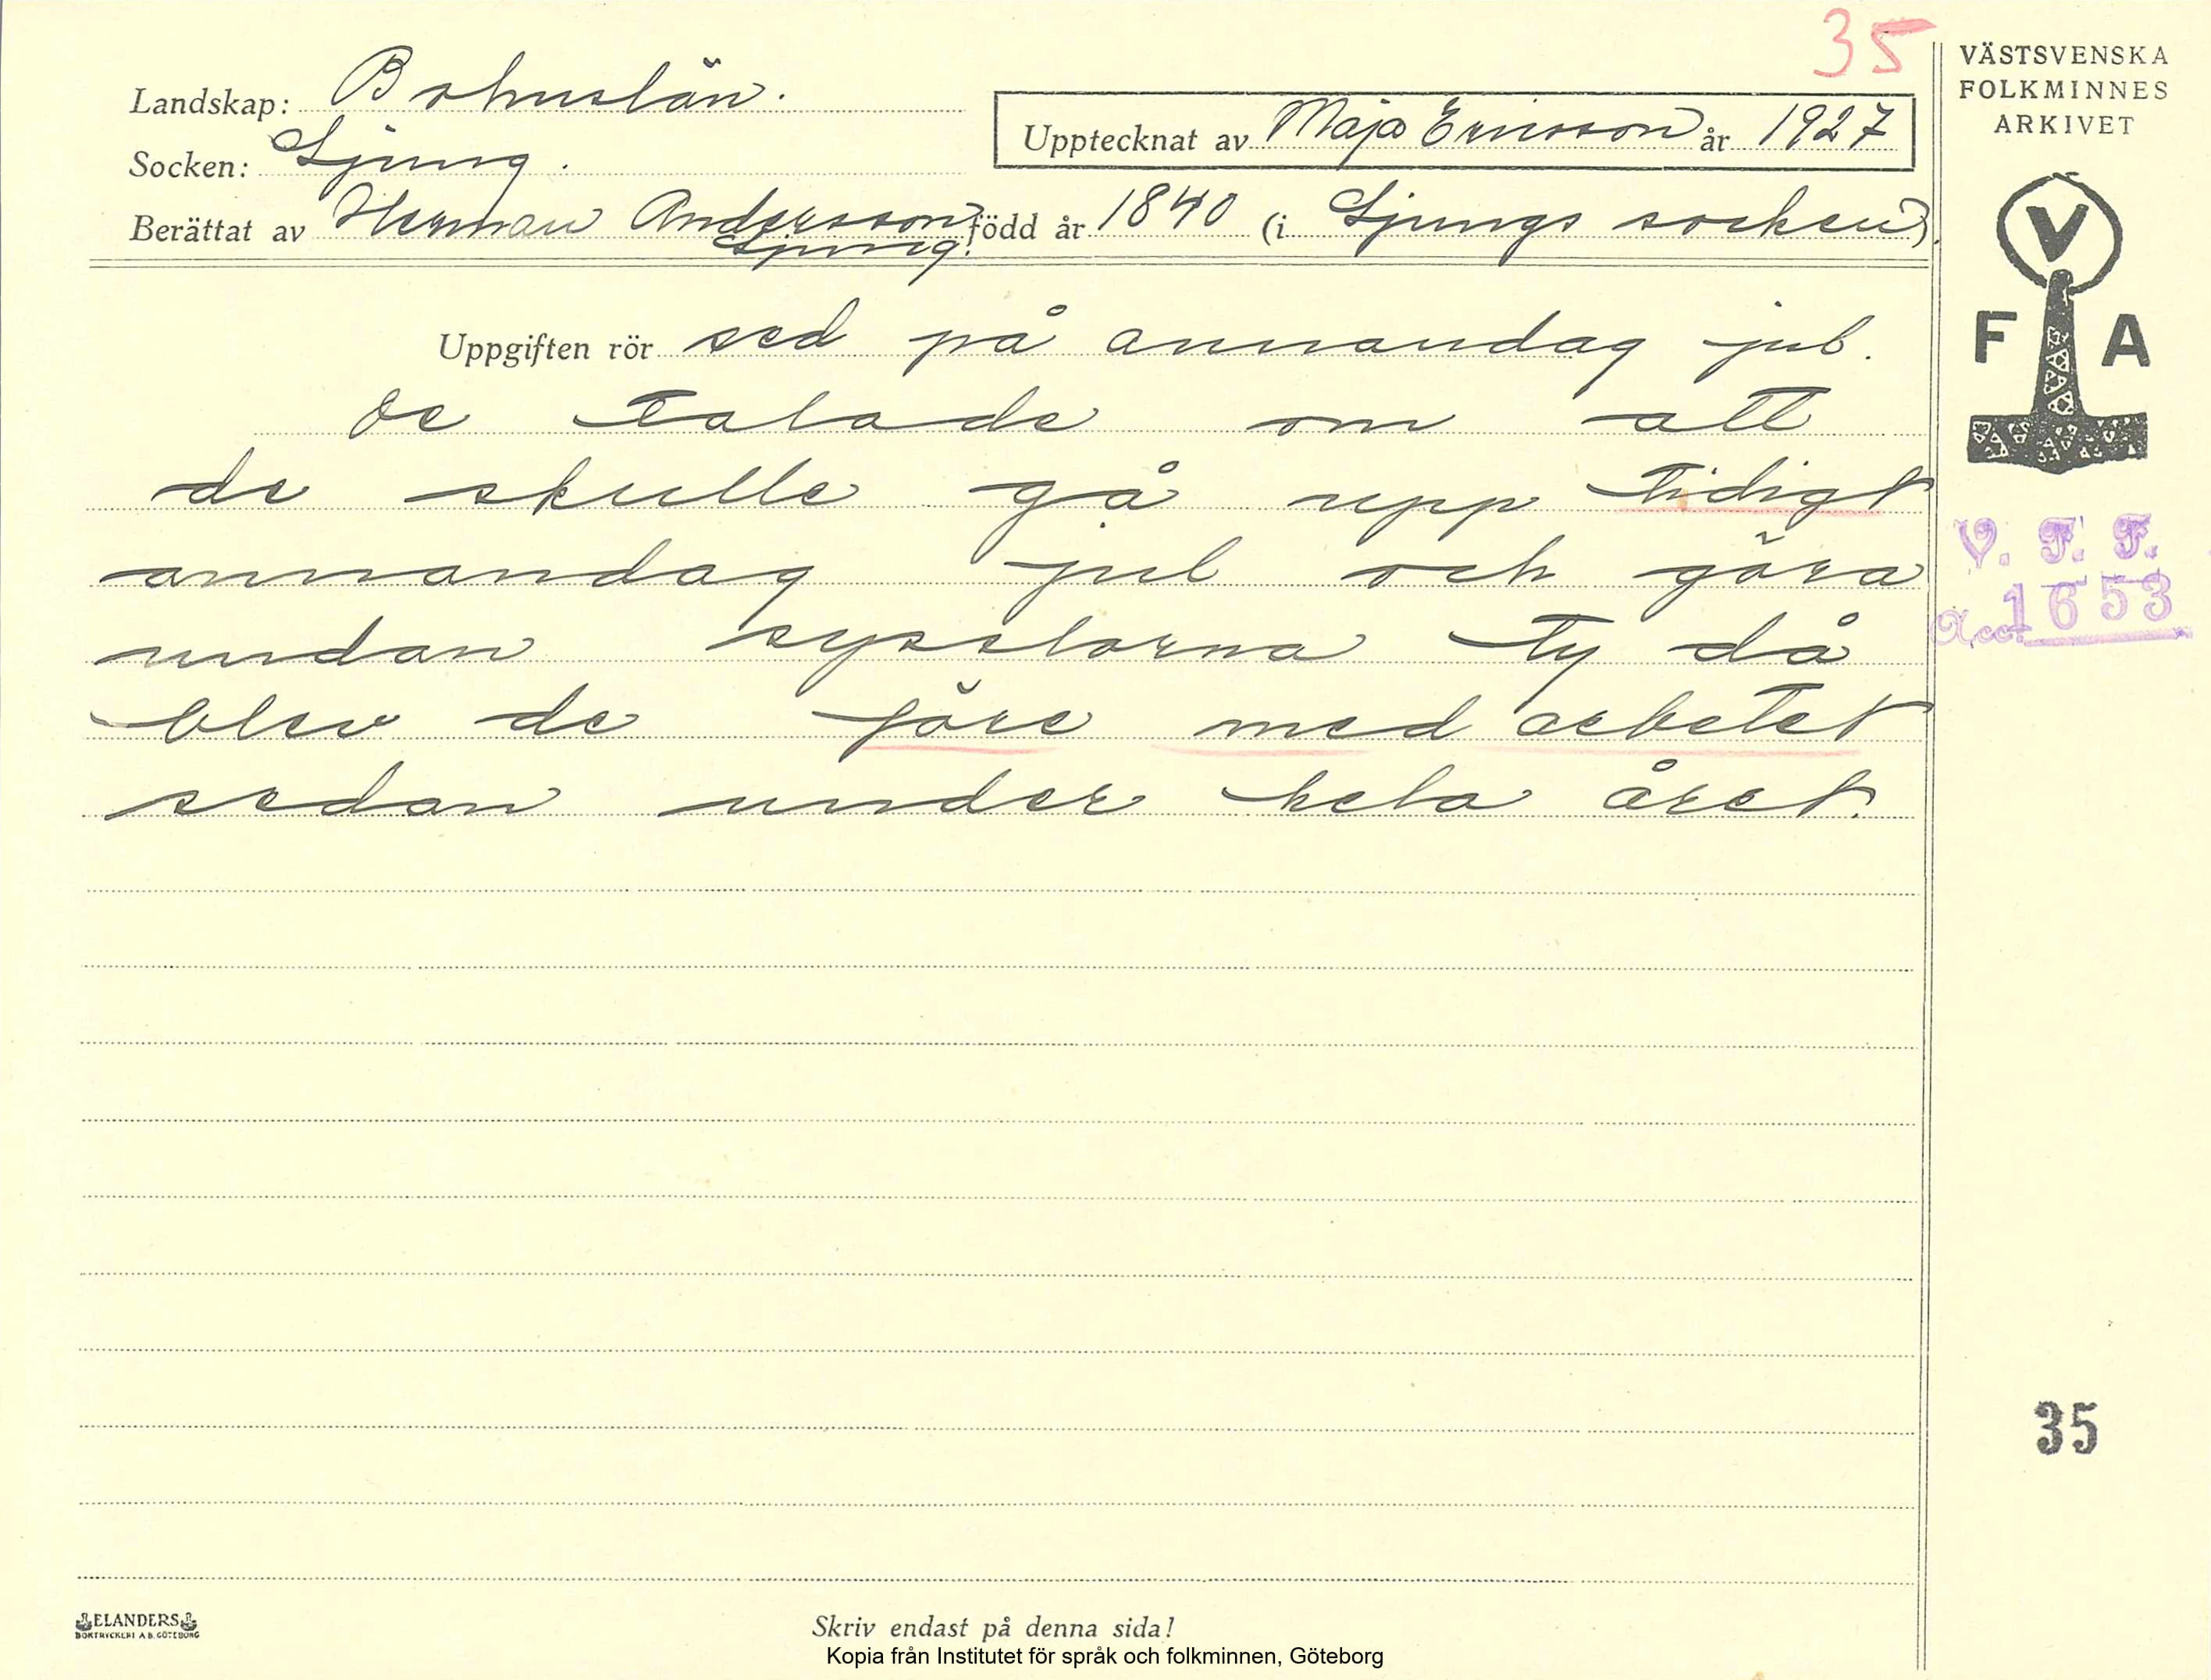 35
VÄSTSVENSKA
FOLKMINNES
ARKIVET
Landskap: Bohuslän.
Upptecknat av Maja Ericsson år 1927
Socken: Ljung.
Berättat av Herman Andersson född år 1840 (i Ljungs socken).
Ljung.
V
F A
Uppgiften rör sed på annandag jul.
De talade om att
de skulle gå upp tidigt
annandag jul och göra
undan sysslorna ty då
blev de före med arbetet
sedan under hela året.
V. F. F.
Acc. 1653
35
ELANDERS
BOKTRYCKERI A.B. GÖTEBORG
Skriv endast på denna sida!
Kopia från Institutet för språk och folkminnen, Göteborg